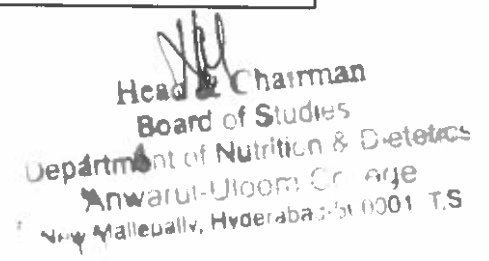 Head & Chairman
Board of Studies
Department of Nutrition & Dietetics
Anwarul-Uloom College
New Mallepally, Hyderabad-500001 T.S